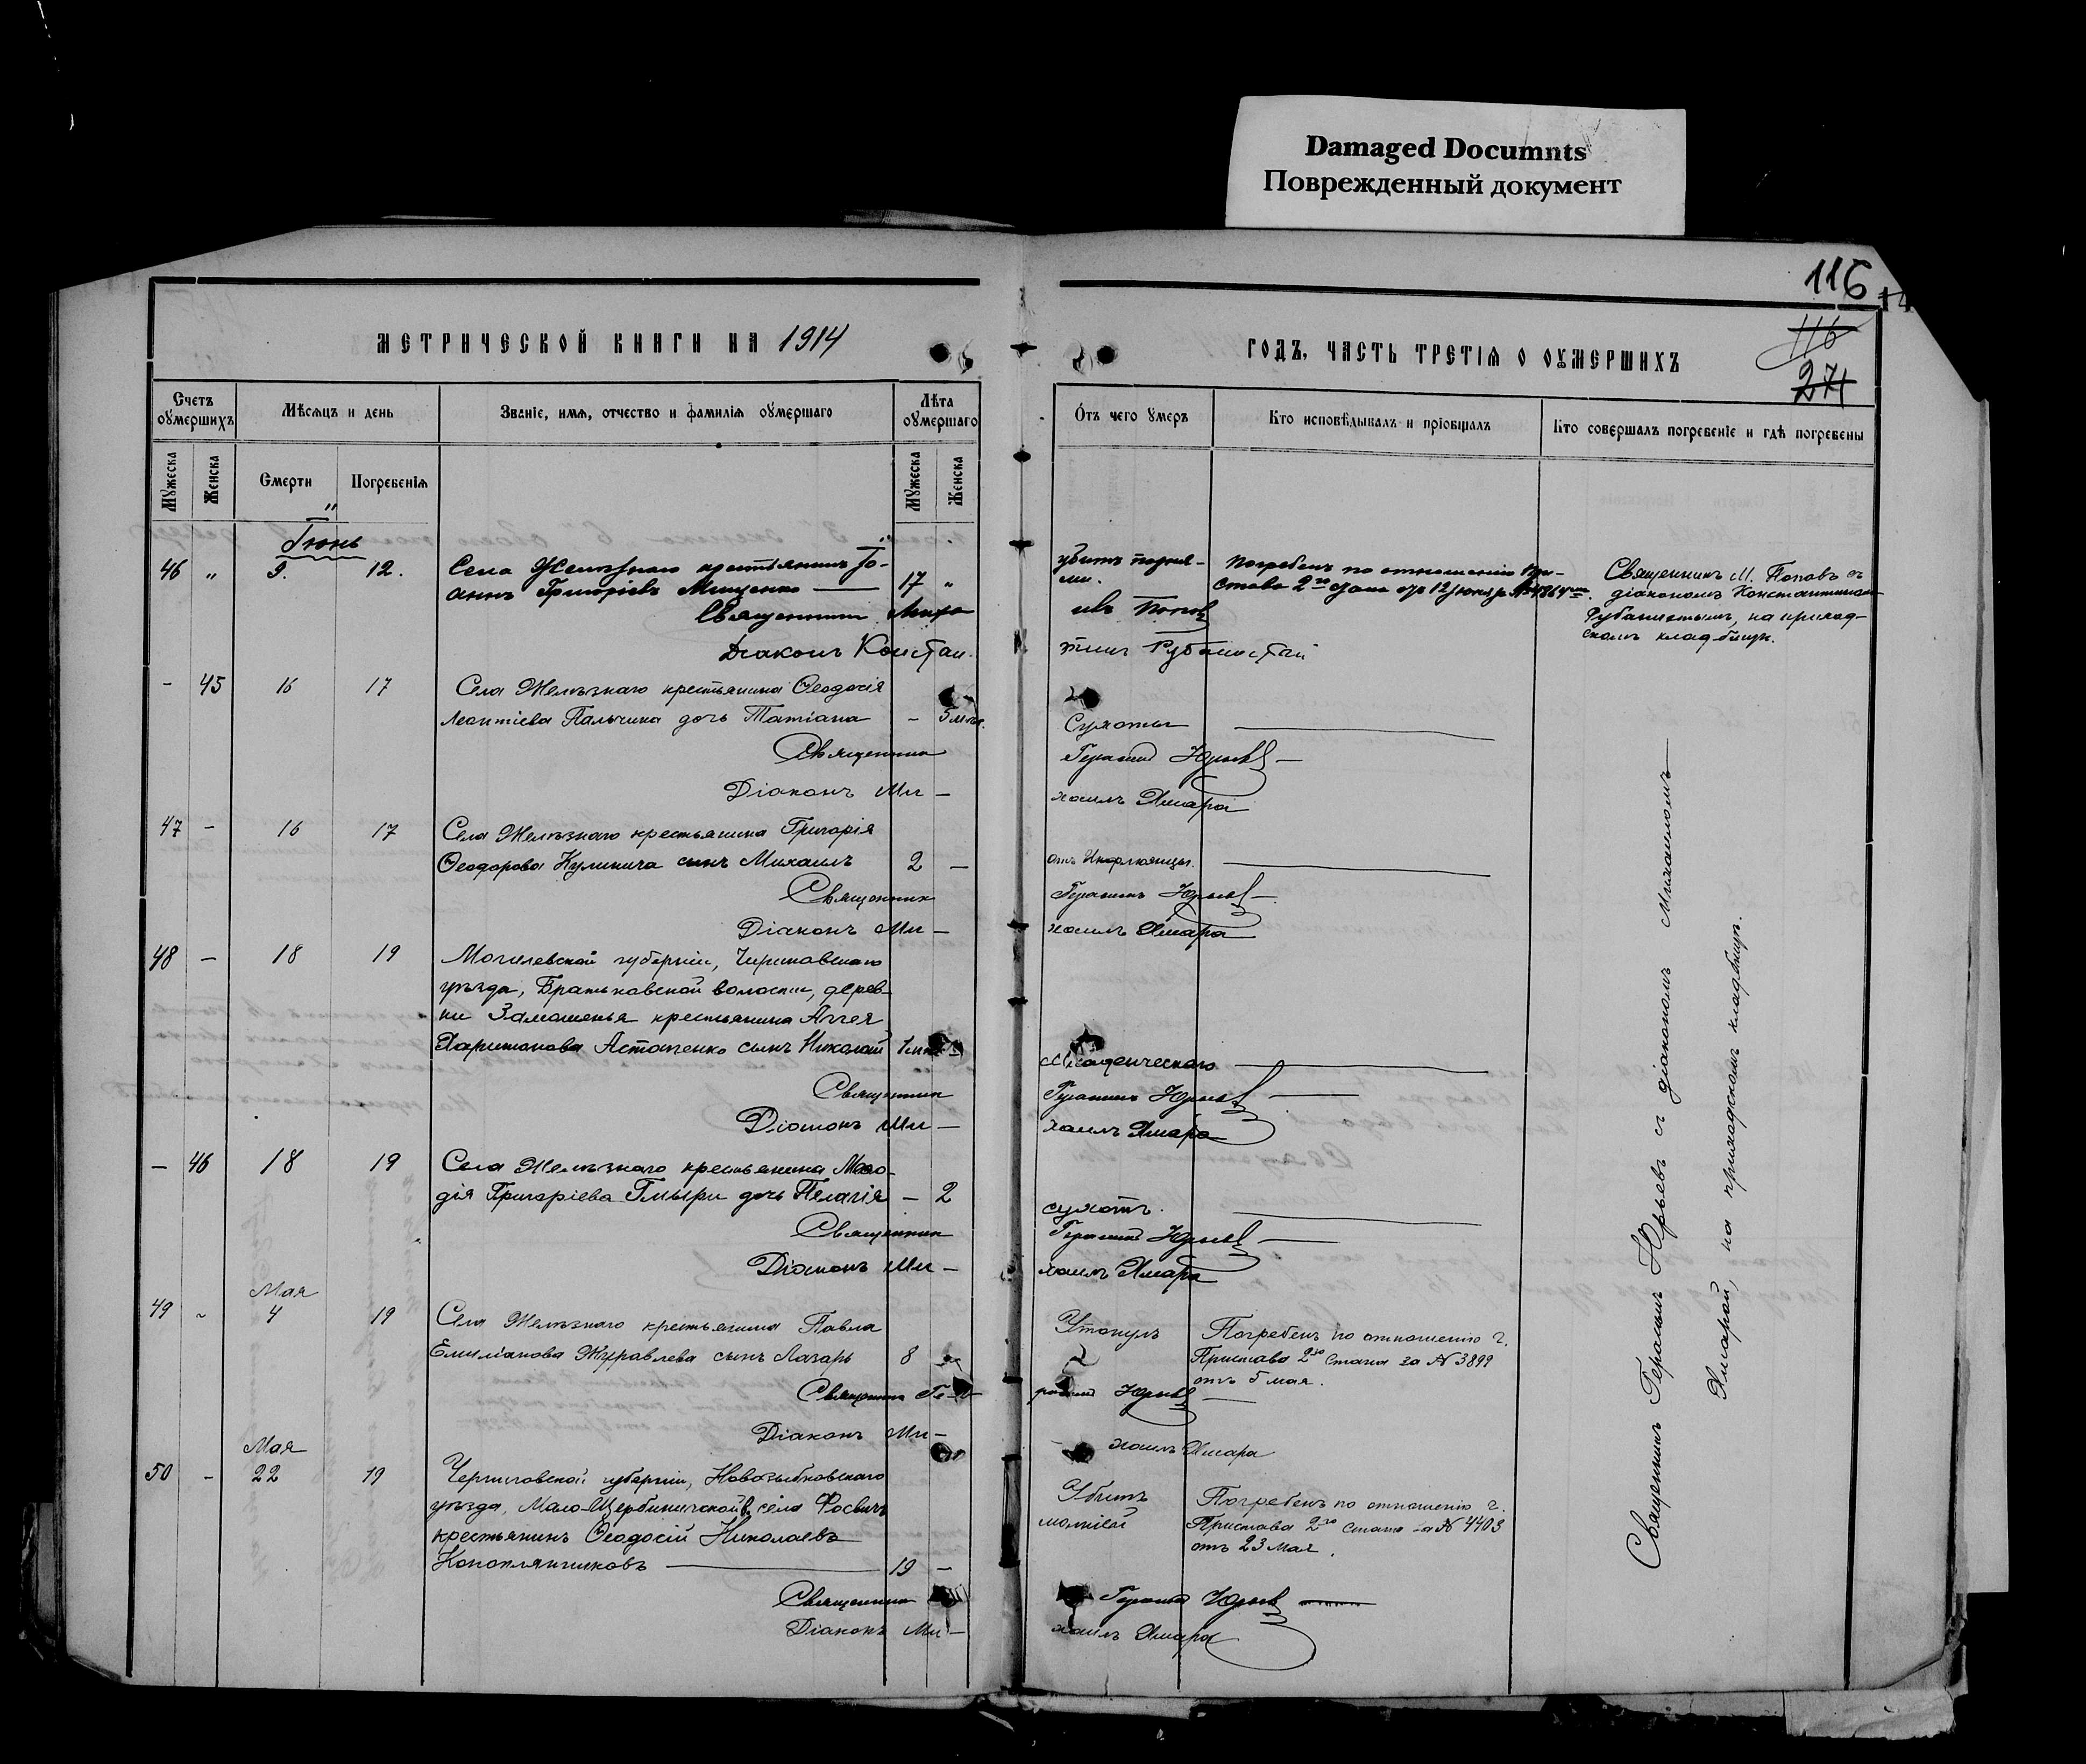 Damaged Documnts
Поврежденный документ
116
116
271
МЕТРИЧЕСКОЙ КНИГИ НА 1914
ГОДЪ, ЧАСТЬ ТРЕТІЯ О ОУМЕРШИХЪ
Счетъ оумершихъ
Мѣсяцъ и день
Званіе, имя, отчество и фамилія оумершаго
Лѣта оумершаго
Отъ чего умеръ
Кто исповѣдывалъ и пріобщалъ
Кто совершалъ погребеніе и гдѣ погребены
Мужеска
Женска
Смерти
Погребенія
Мужеска
Женска
Іюнь
46 " 9. 12. Села Желѣзнаго крестьянинъ Іо-
аннъ Григоріевъ Мищенко — 17 "
Священникъ
Діаконъ Констан-
Погребенъ по отношенію При-
става 2го стана отъ 12 Іюня
Священникъ М. Поповъ съ
діакономъ Константином
на приход-
скомъ кладбищѣ.
- 45 16 17 Села Желѣзнаго крестьянина Ѳеодосія
Леонтіева Пальчика дочь Татіана - 5 мѣс.
Сухоты
Священникъ Герасимъ Юрьевъ
Діаконъ Ми- хаилъ Хмара
47 - 16 17 Села Желѣзнаго крестьянина Григорія
Ѳеодорова Куликича сынъ Михаилъ 2 -
отъ
Священникъ Герасимъ Юрьевъ
Діаконъ Ми- хаилъ Хмара
48 - 18 19 Могилевской губерніи, Чериковскаго
уѣзда, Братьковской волости, дерев-
ни Замошенья крестьянина Аггея
Харитонова Астапенко сынъ Николай
Младенческаго
Священникъ Герасимъ Юрьевъ
Діаконъ Ми- хаилъ Хмара
- 46 18 19 Села Желѣзнаго крестьянина Меѳо-
дія Григоріева Гмыри дочь Пелагія - 2
сухотъ.
Священникъ Герасимъ Юрьевъ
Діаконъ Ми- хаилъ Хмара
Мая
49 - 4 19 Села Желѣзнаго крестьянина Павла
Емиліанова Журавлева сынъ Лазарь 8
Утонулъ
Погребенъ по отношенію г.
Пристава 2го стана за № 3899
отъ 5 мая.
Священникъ Ге- расимъ Юрьевъ
Діаконъ Ми- хаилъ Хмара
Мая
50 - 22 19 Черниговской губерніи, Новозыбковскаго
уѣзда, Мало-Щербиничской в. села
крестьянинъ Ѳеодосій Николаевъ
Коноплянниковъ — 19 -
Убитъ
молніей
Погребенъ по отношенію г.
Пристава 2го стана за № 4403
отъ 23 Мая.
Священникъ Герасимъ Юрьевъ
Діаконъ Ми- хаилъ Хмара
Священникъ Герасимъ Юрьевъ съ діакономъ Михаиломъ
Хмарой, на приходскомъ кладбищѣ.